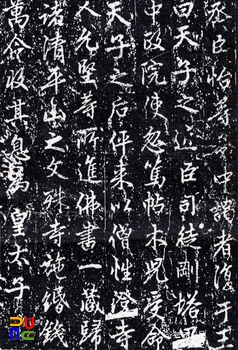 丞臣怡等以中謁者復于王
曰天子之近臣司徒剛塔里
中政院使忽篤帖木兒受命
天子之后俾来以僧性澄寺
人允堅等所進佛書一藏歸
諸清平山之文殊寺施緡錢
萬令取其息為皇太子